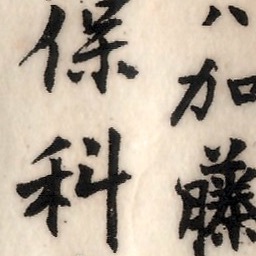 加藤
保科